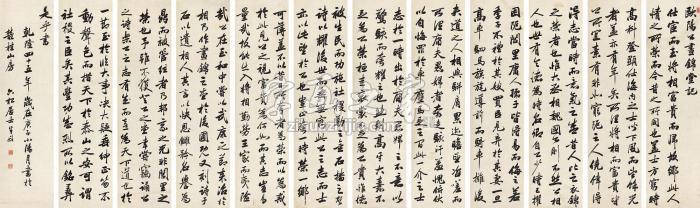 歐陽公晝錦堂記
仕宦而至將相富貴而歸故鄉此人
情之所榮而今昔之所同也蓋士方窮時
高科登顯仕海內之士聞下風而望
餘光者蓋亦有年矣所謂將相而富貴皆公
所宜素有非如窮阨之人僥倖得
得志當時而意氣之盛昔人比之衣錦
之榮者也惟大丞相魏國公則不然公相
人也世有令德為時名卿自公少時已擢
困阨閭里庸人孺子皆得易而侮之若
季子不禮於其嫂買臣見棄於其妻一旦
高車駟馬旗旄導前而騎卒擁後
夾道之人相與駢肩累迹瞻望咨嗟而
所謂庸夫愚婦者奔走駭汗羞愧俯伏
以自悔罪於車塵馬足之間此一介之士
志於一時出於庸夫愚婦之不意以
驚駭而誇耀之也然則高牙大纛不
足為公榮桓圭袞裳不足為公貴惟德
被生民而功施社稷勒之金石播之聲
詩以耀後世而垂無窮此公之志而士
亦以此望於公也豈止誇一時榮一鄉
可薄蓋不以昔人所誇者為榮而以為戒
於此見公之視富貴為何如而其志豈易
量哉故能出入將相勤勞王家而夷險
哉公在至和中嘗以武康之節來治於
相乃作晝錦之堂於後圃既又刻詩於
石以遺相人其言以快恩讎矜名譽為
鼎而被絃歌者乃邦家之光非閭里之
榮也余雖不獲登公之堂幸嘗竊誦公
之詩樂公之志有成而喜為天下道也於
一節至於臨大事決大議垂紳正笏不
動聲色而措天下於泰山之安可謂
社稷之臣矣其豐功盛烈所以銘彝
是乎書
乾隆四十五年歲在庚子小陽月書於
桂林山房
六松居士